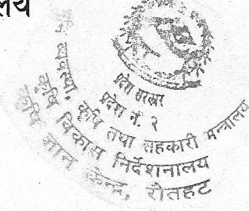 लय
प्रदेश सरकार
प्रदेश नं. २
व्यवस्था, कृषि तथा सहकारी मन्त्रालय
कृषि विकास निर्देशनालय
कृषि ज्ञान केन्द्र, रौतहट